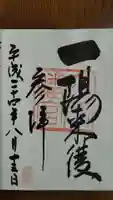 一陽来復
参拝
平成二十四年八月十五日